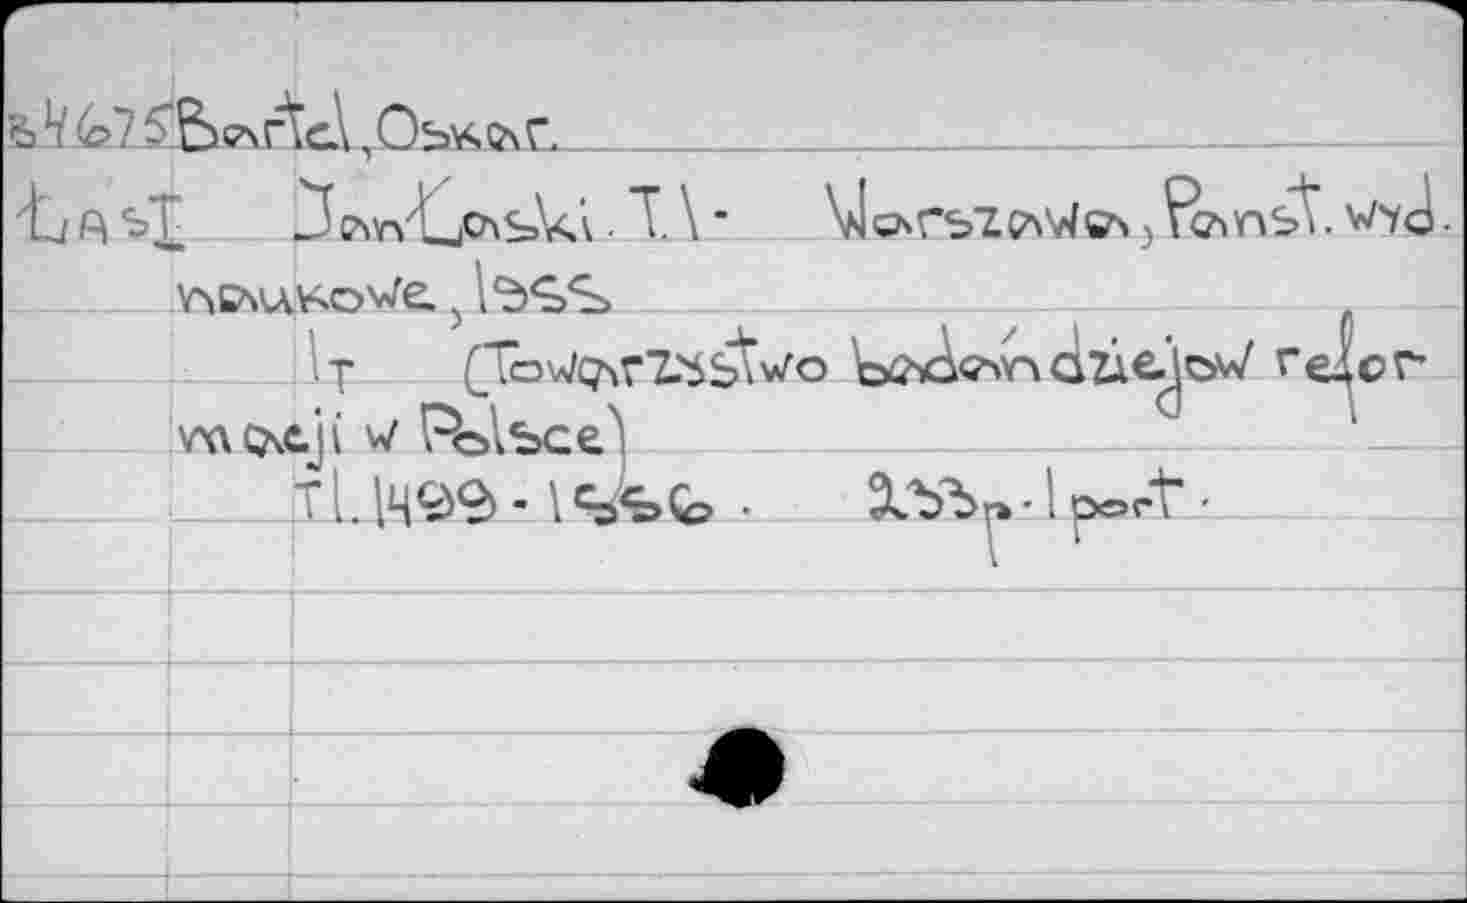 Bartel, Oskar.
Jan Łaski. T. 1. Warszawa, Państ. wyd.
naukowe, 1955
1 T (Towarzystwo badań dziejów refor
macji w Polsce)
T 1. 1499 - 1556. 233 p. 1 port.